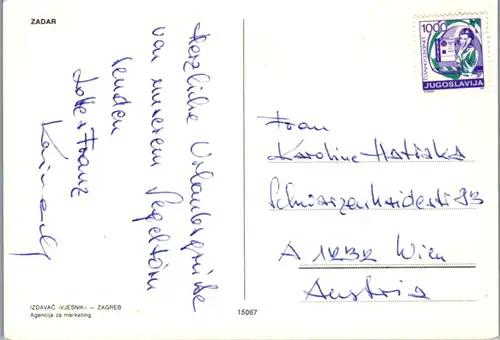 ZADAR
Herzliche Urlaubsgrüße
von unserem Segeltörn
senden
Lotte + Franz
1000
JUGOSLAVIJA
Frau
Karoline
A 1232 Wien
Austria
IZDAVAČ »VJESNIK« — ZAGREB
Agencija za marketing
15067